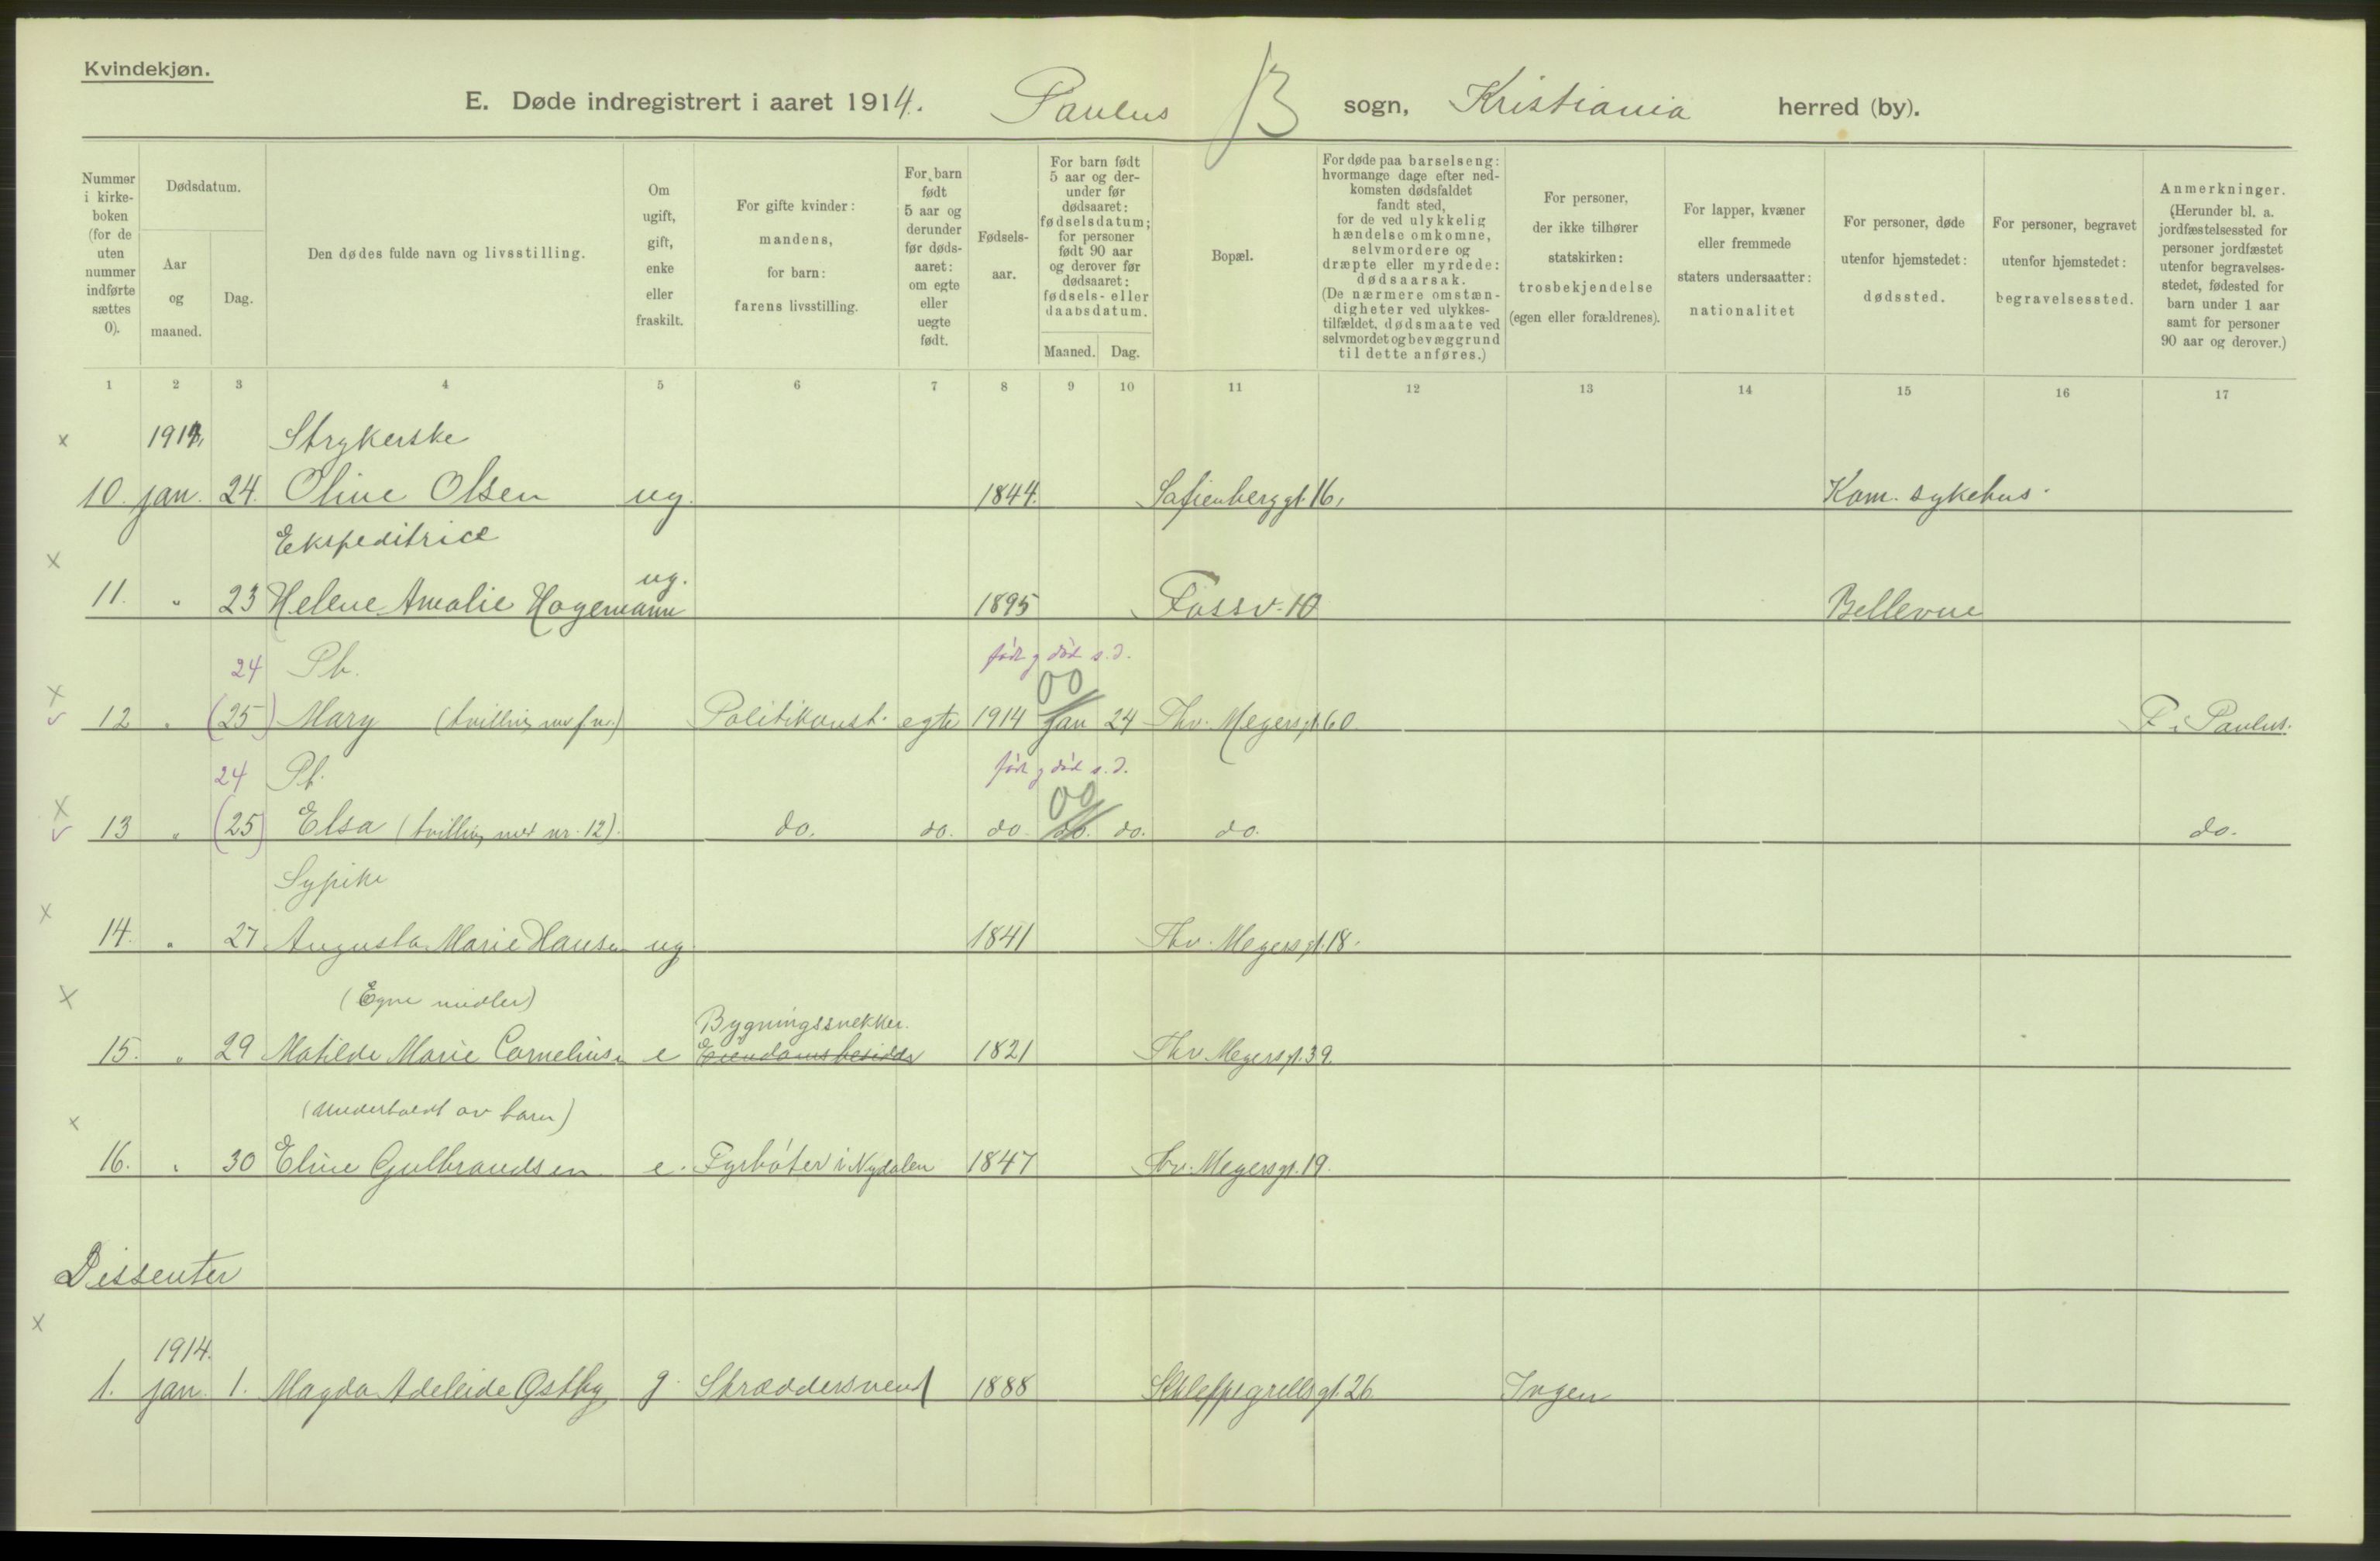 Kvindekjøn.
E. Døde indregistrert i aaret 1914. Paulus B sogn, Kristiania herred (by).
Nummer i kirke-boken (for de uten nummer indførte sættes 0).
Dødsdatum.
Aar og maaned.
Dag.
Den dødes fulde navn og livsstilling.
Om ugift, gift, enke eller fraskilt.
For gifte kvinder: mandens, for barn: farens livsstilling.
For barn født 5 aar og derunder før døds-aaret: om egte eller uegte født.
Fødsels-aar.
For barn født 5 aar og der-under før dødsaaret: fødselsdatum; for personer født 90 aar og derover før dødsaaret: fødsels- eller daabsdatum.
Maaned. Dag.
Bopæl.
For døde paa barselseng: hvormange dage efter ned-komsten dødsfaldet fandt sted, for de ved ulykkelig hændelse omkomne, selvmordere og dræpte eller myrdede: dødsaarsak. (De nærmere omstæn-digheter ved ulykkes-tilfældet, dødsmaate ved selvmordet og bevæggrund til dette anføres.)
For personer, der ikke tilhører statskirken: trosbekjendelse (egen eller forældrenes).
For lapper, kvæner eller fremmede staters undersaatter: nationalitet
For personer, døde utenfor hjemstedet: dødssted.
For personer, begravet utenfor hjemstedet: begravelsessted.
Anmerkninger. (Herunder bl. a. jordfæstelsessted for personer jordfæstet utenfor begravelses-stedet, fødested for barn under 1 aar samt for personer 90 aar og derover.)
1 2 3 4 5 6 7 8 9 10 11 12 13 14 15 16 17
x 1914, Strykerske
10. jan. 24. Oline Olsen ug. 1844. Sofienberggt. 16, Kom. sykehus.
Ekspeditrice
x 11. " 23 Helene Amalie Hagemann ug. 1895 Fossv. 10 Bellevue
24 Pb. født og død s.d.
x v 12 " (25) Mary (tvilling med f. nr.) Politikonst. egte 1914 00 jan 24 Thv. Meyersgt. 60. F. i Paulus.
24 Pb. født og død s.d.
x v 13 " (25) Elsa (tvilling med nr. 12). do. do. do. 00 do. do. do. do.
Sypike
x 14. " 27 Augusta Marie Hansen ug. 1841 Thv. Meyersgt. 18.
(Egne midler)
Bygningssnekker.
x 15. " 29 Matilde Marie Cornelius e Eiendomsbesidder 1821 Thv. Meyersgt. 39.
(underholdt av barn)
x 16. " 30 Eline Gulbrandsen e. Fyrbøter i Nydalen 1847 Thv. Meyersgt. 19.
Dissenter
x 1914.
1. jan. 1. Magda Adeleide Østby g. Skræddersvend 1888 Schleppegrellsgt. 26 Ingen